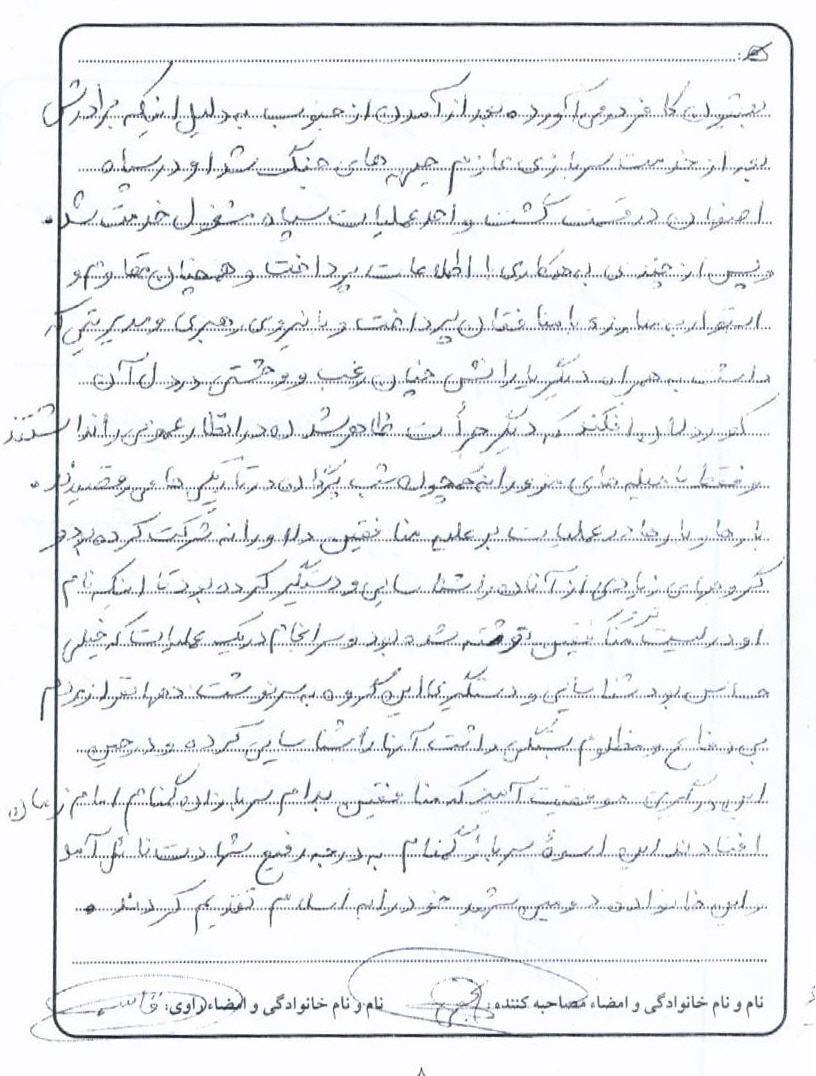 بعد از آمدن از جنوب به دلیل اینکه برادرش
بعد از خدمت سربازی عازم جبهه های جنگ شد او در سپاه
اصفهان در قسمت گشت واحد عملیات سپاه مشغول خدمت شد.
و پس از چندی به همکاری با اطلاعات پرداخت و همچنان مقاوم و
استوار به مبارزه با منافقان پرداخت و با نیروی رهبری و مدیریتی که
داشت به همراه دیگر یارانش چنان رعب و وحشتی در دل آن
کوردلان افکند که دیگر جرأت ظاهر شدن در انظار عمومی را نداشتند
و فقط با حیله های مزورانه همچون شب پرگان در تاریکی ها می رقصیدند.
بارها و بارها در عملیات بر علیه منافقین دلاورانه شرکت کرده بود و
گروههای زیادی از آنان را شناسایی و دستگیر کرده بود تا اینکه نام
او در لیست ترور منافقین نوشته شده بود و سرانجام در یک عملیات که خیلی
حساس بود شناسایی و دستگیری این گروه به سرنوشت دهها نفر از مردم
بی دفاع و مظلوم بستگی داشت آنها را شناسایی کرده و در حین
این درگیری موفقیت آمیز که منافقین بدام سربازان گمنام امام زمان
افتادند این اسوۀ سرباز گمنام به درجه رفیع شهادت نائل آمد
و این خانواده دومین شهید خود را به اسلام تقدیم کردند.
نام و نام خانوادگی و امضاء مصاحبه کننده: نام و نام خانوادگی و امضاء راوی:
۸